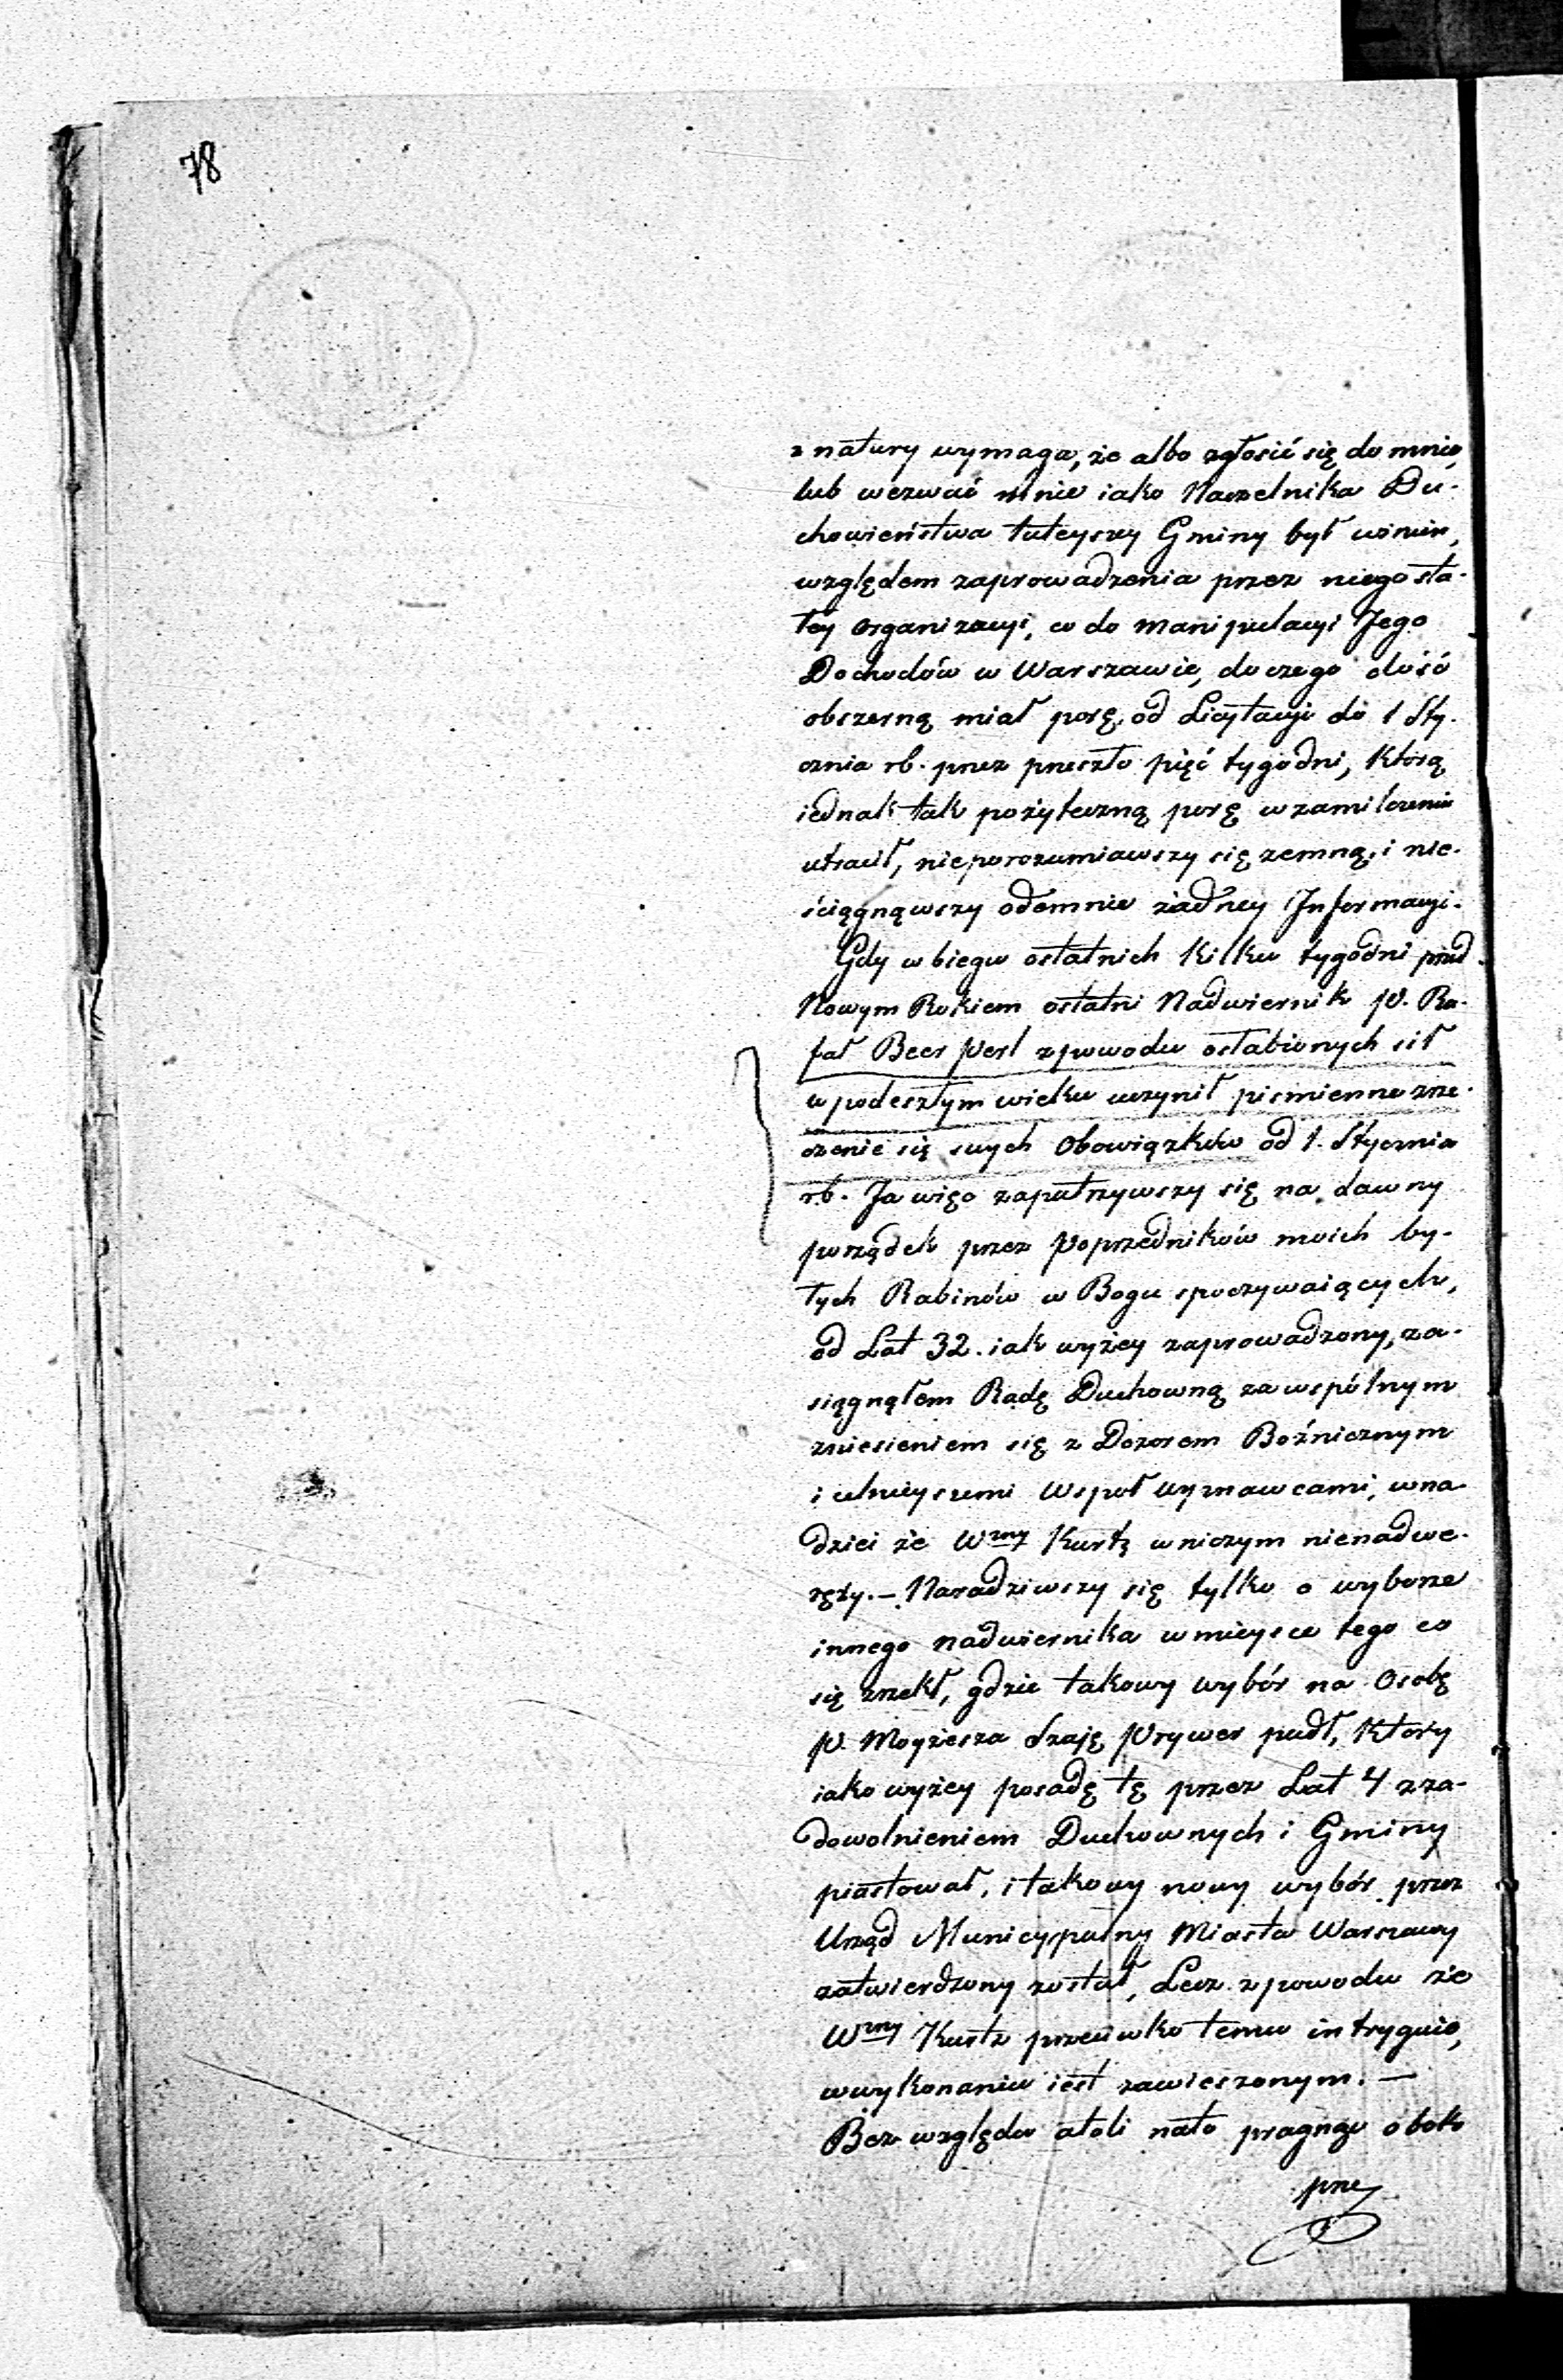 78
z natury wymaga, że albo zgłosić się do mnie,
lub wezwać mnie iako Naczelnika Du-
chowieństwa tuteyszy Gminy był winien,
względem zaprowadzenia przez niego sta-
łey organizacyi, co do manipulacyi Jego
Dochodów w Warszawie, do czego dość
obszerną miał porę, od Licytacyi do 1 Sty-
cznia rb. przez przeszło pięć tygodni, którą
iednak tak pożyteczną porę w zamilczeniu
utracił, nieporozumiawszy się zemną, i nie-
ściągnąwszy odemnie żadney Informacyi.
Gdy w biegu ostatnich kilku tygodni przed
Nowym Rokiem ostatni Nadwiernik P. Ra-
fał Beer Perl z powodu osłabionych sił
w podeszłym wieku uczynił piśmienne zrze-
czenie się swych Obowiązków od 1. Stycznia
rb. Ja więc zapatrzywszy się na dawny
porządek przez Poprzedników moich by-
łych Rabinów w Bogu spoczywaiących,
od Lat 32. iak wyżey zaprowadzony, za-
siągnąłem Radę Duchowną za wspólnym
zniesieniem się z Dozorem Bożnicznym
i celnieyszemi Współ wyznawcami, w na-
dziei że Wzny Kurtz w niczym nienadwe-
ręży. — Naradziwszy się tylko o wyborze
innego nadwiernika w mieysce tego co
się zrzekł, gdzie takowy wybór na Osobę
P. Moyżesza Szaję Prywes padł, który
iako wyżey posadę tę przez Lat 4 z za-
dowolnieniem Duchownych i Gminy
piastował, i takowy nowy wybór przez
Urząd Municypalny Miasta Warszawy
zatwierdzony został, Lecz z powodu że
Wzny Kurtz przeciwko temu intryguie,
w wykonaniu iest zawieszonym. —
Bez względu atoli nato pragnąc obok
prze